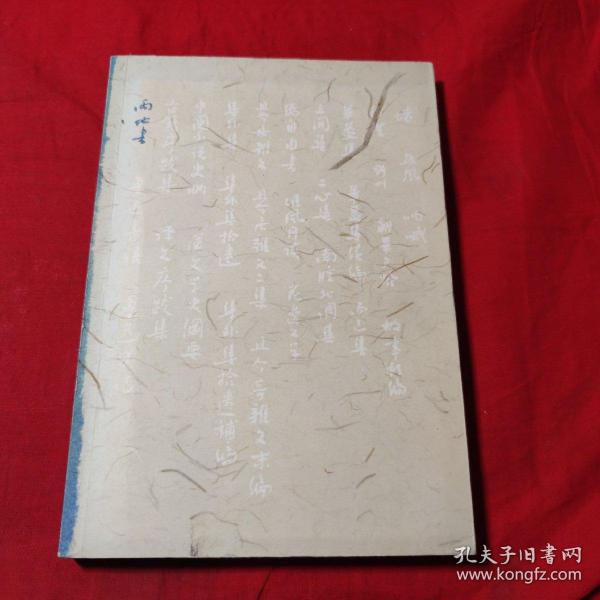 坟 热风 呐喊
彷徨 野草 朝花夕拾 故事新编
华盖集 华盖集续编 而已集
三闲集 二心集 南腔北调集
伪自由书 准风月谈 花边文学
且介亭杂文 且介亭杂文二集 且介亭杂文末编
集外集 集外集拾遗 集外集拾遗补编
中国小说史略 汉文学史纲要
古籍序跋集 译文序跋集
两地书
孔夫子旧书网
www.kongfz.com